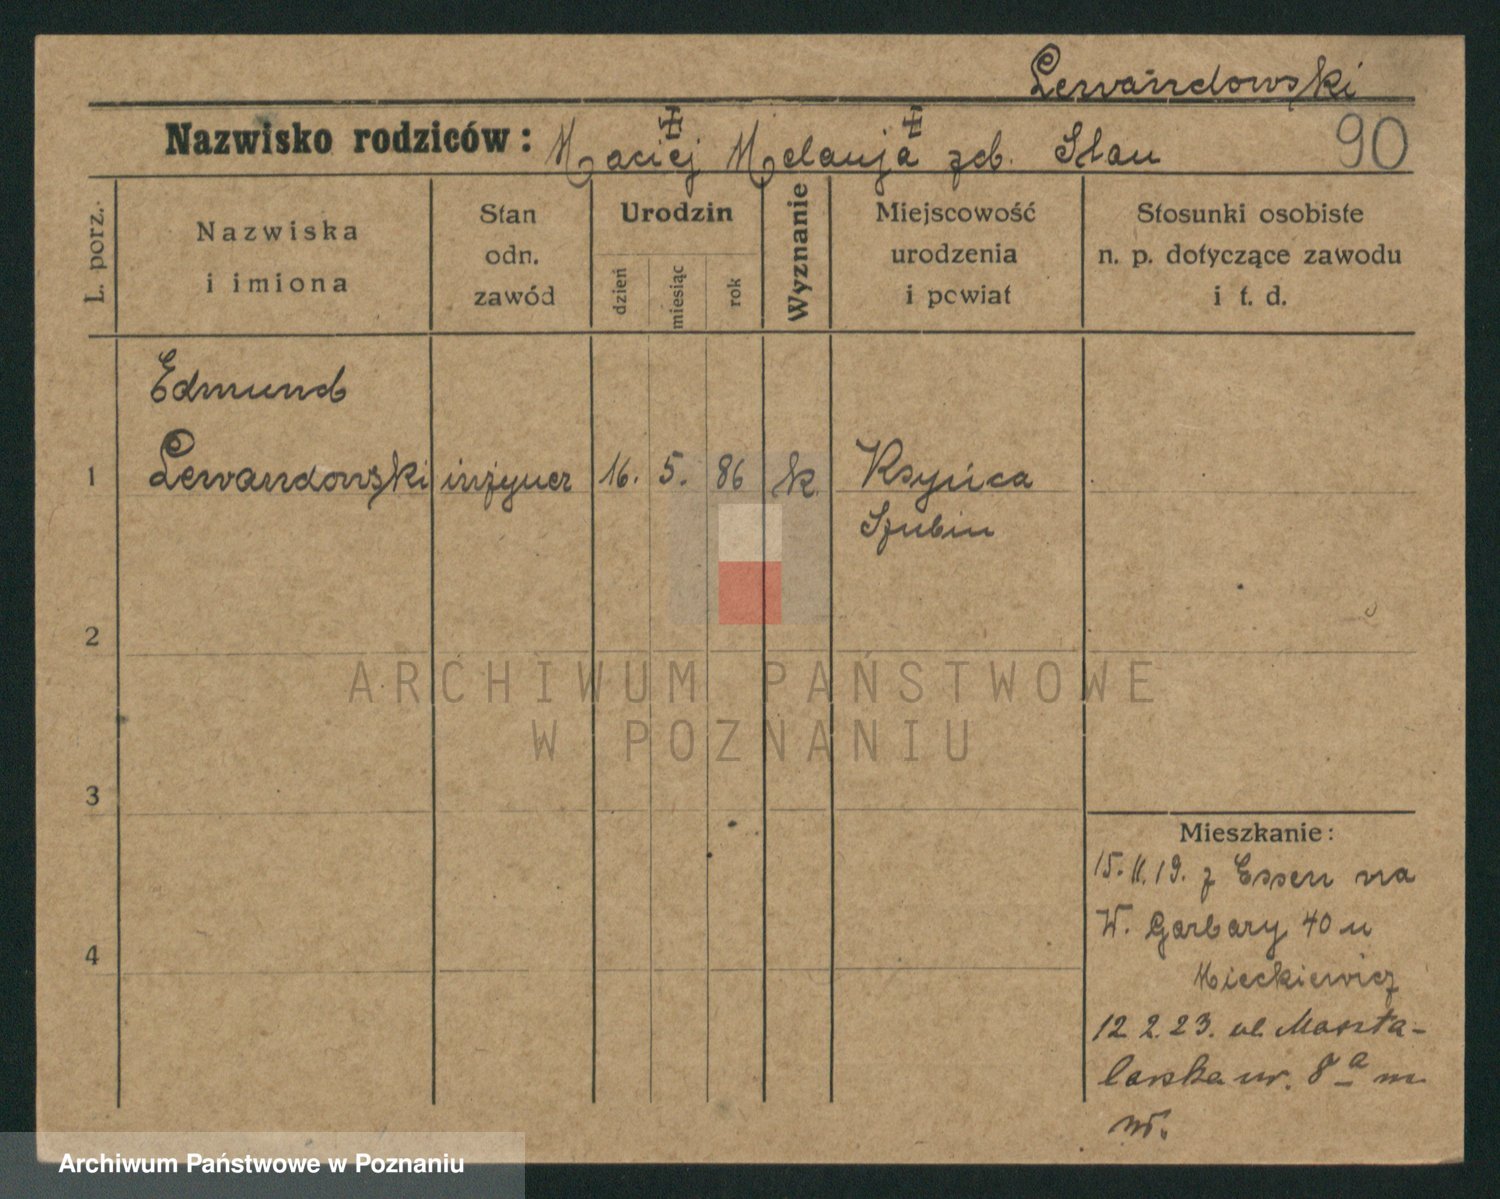 Lewandowski
Nazwisko rodziców: Maciej Melanja zd. Stau
90
L. porz.
Nazwiska
i imiona
Stan
odn.
zawód
Urodzin
dzień
miesiąc
rok
Wyznanie
Miejscowość
urodzenia
i powiat
Stosunki osobiste
n. p. dotyczące zawodu
i t. d.
Edmund
1 Lewandowski inżynier 16. 5. 86 k. Ksynica
Szubin
2
ARCHIWUM PAŃSTWOWE
W POZNANIU
3
Mieszkanie:
15.11.19. z Essen na
W. Garbary 40 u
Mieckiewicz
4
12 2.23. ul. Maszta-
larska nr. 8 a m
Archiwum Państwowe w Poznaniu